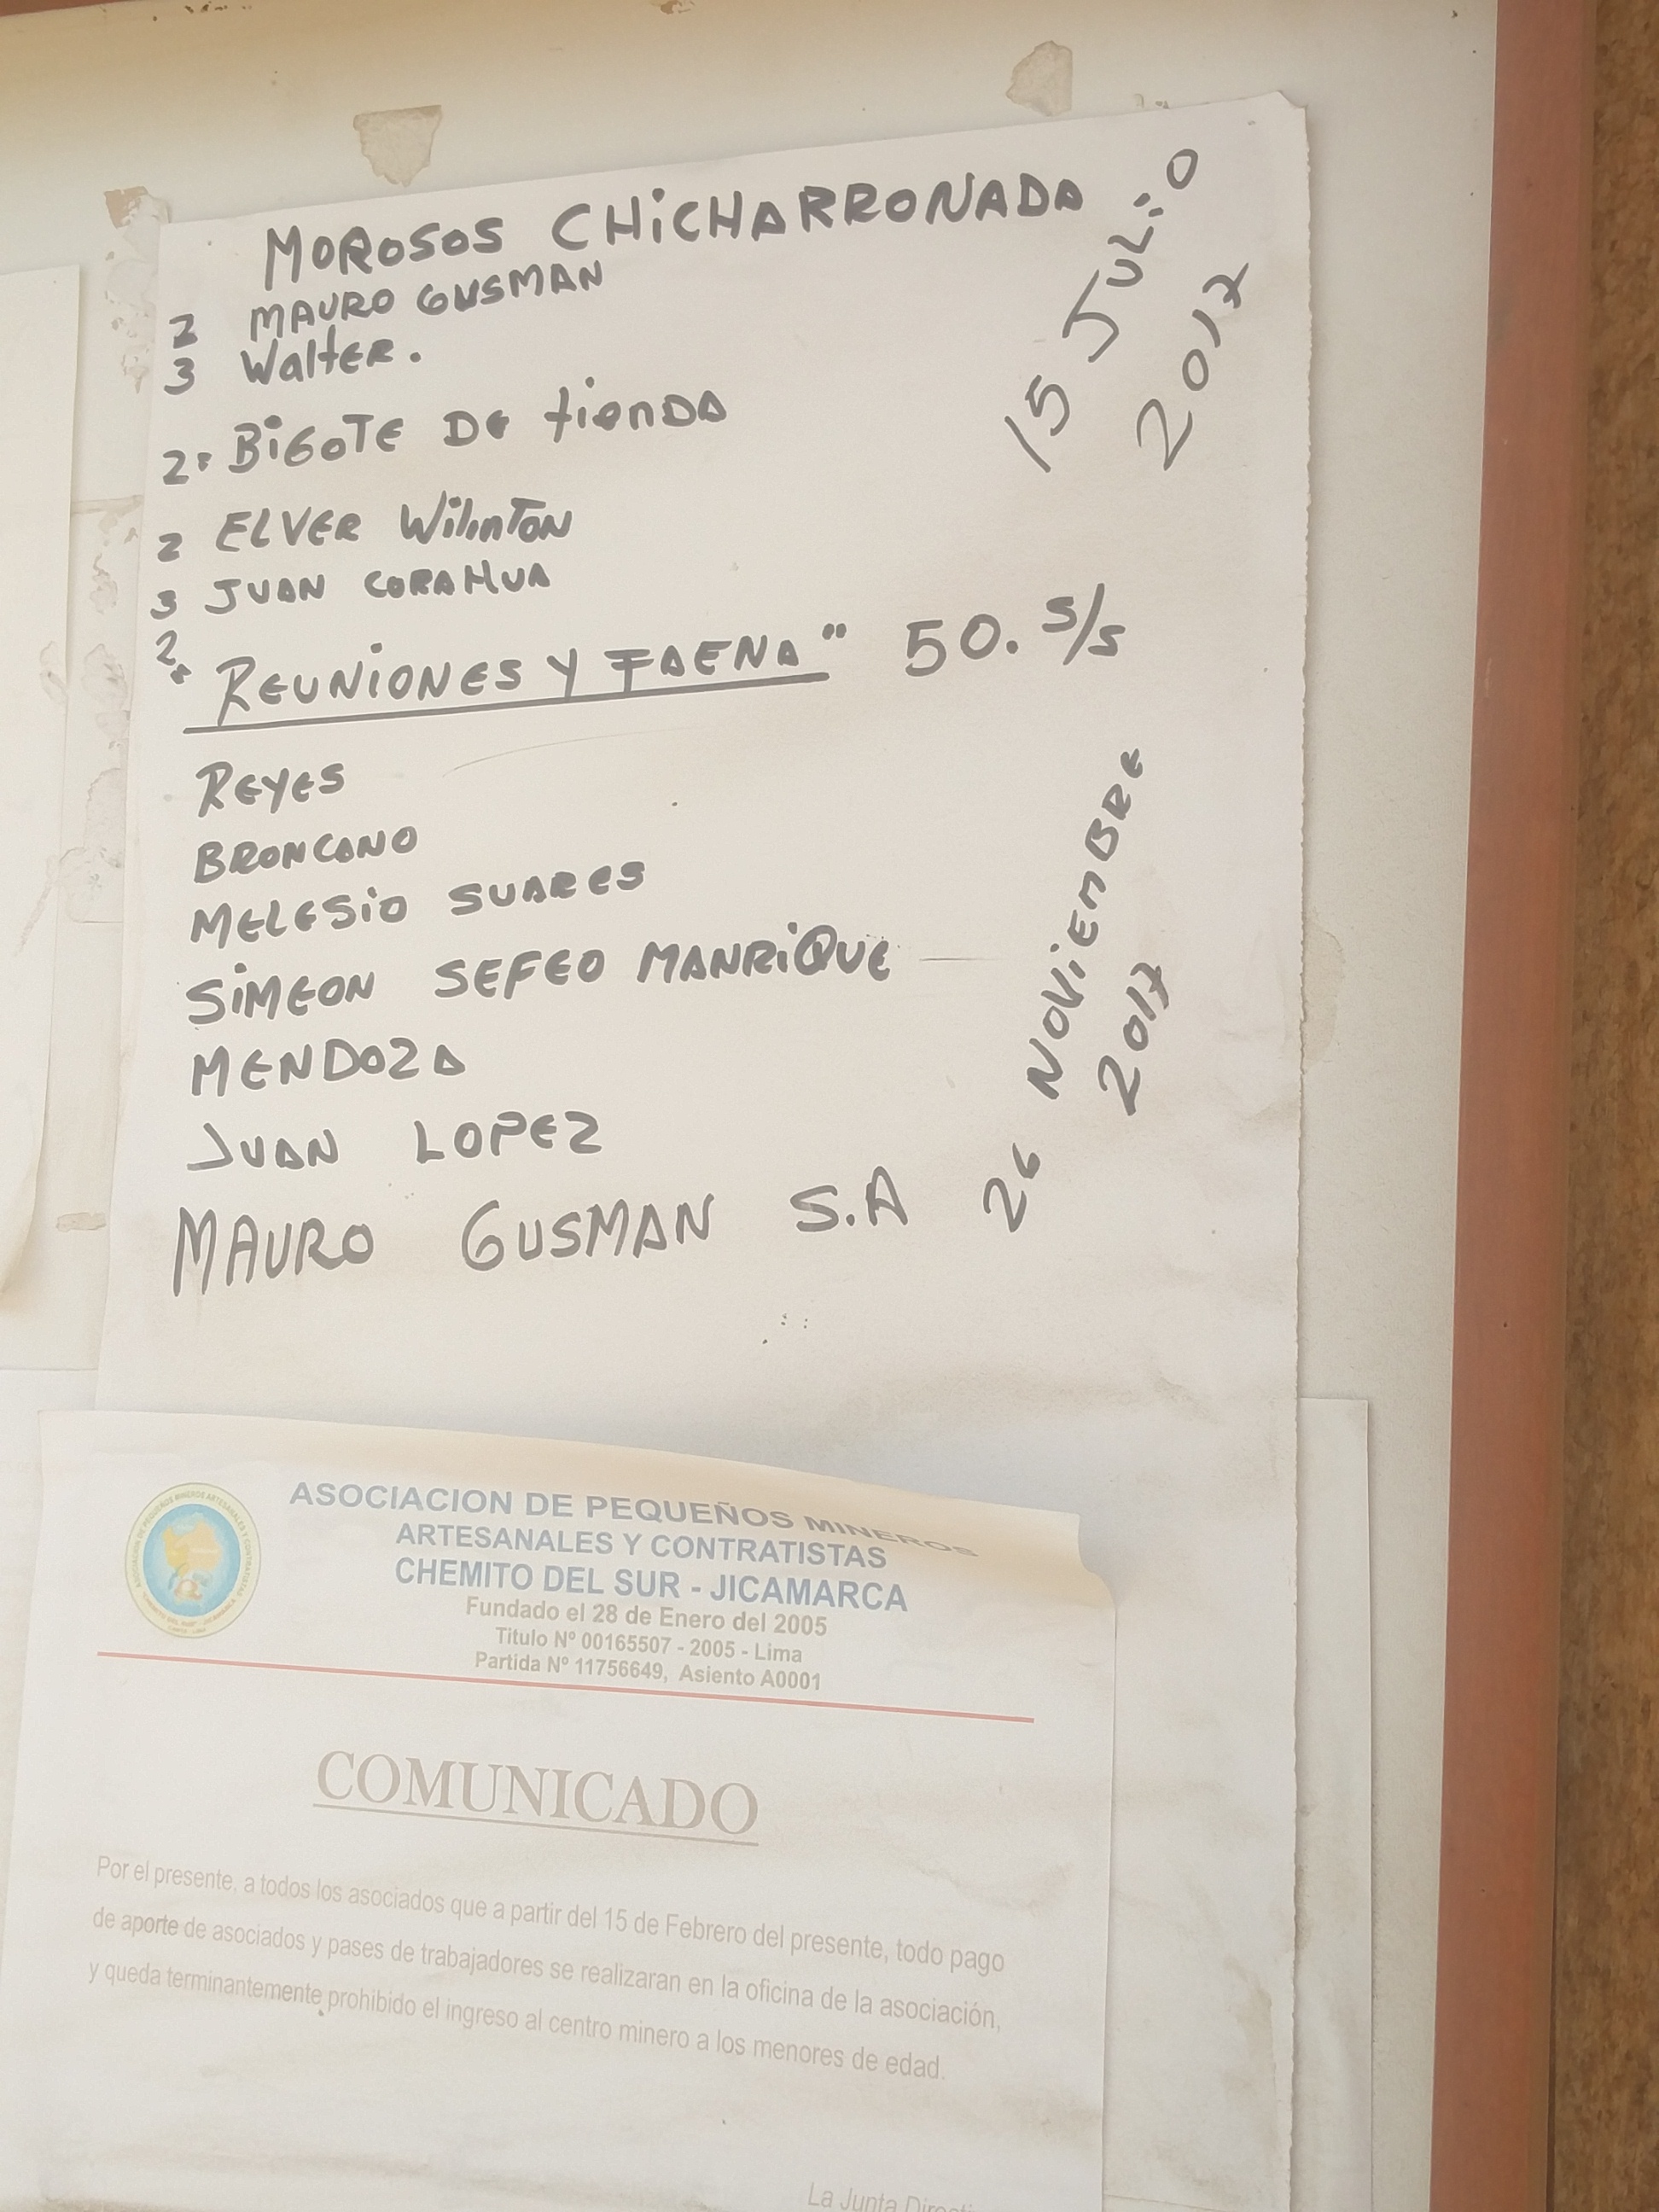 MOROSOS CHiCHARRONADA
2 MAURO GUSMAN
3 WaltER.
2: BiGOTE DE tiENDA
2 ELVER WilinTON
3 JUAN CORAHUA
2.
REUNiONES Y FAENA" 50. S/s
15 JULiO
2017
REYES
BRONCANO
MELESiO SUARES
SiMEON SEFEO MANRiQUE
MENDOZA
JUAN LOPEZ
MAURO GUSMAN S.A
26 NOViEMBRE
2017
ASOCIACION DE PEQUEÑOS MINEROS
ARTESANALES Y CONTRATISTAS
CHEMITO DEL SUR - JICAMARCA
Fundado el 28 de Enero del 2005
Titulo Nº 00165507 - 2005 - Lima
Partida Nº 11756649, Asiento A0001
COMUNICADO
Por el presente, a todos los asociados que a partir del 15 de Febrero del presente, todo pago
de aporte de asociados y pases de trabajadores se realizaran en la oficina de la asociación,
y queda terminantemente prohibido el ingreso al centro minero a los menores de edad.
La Junta